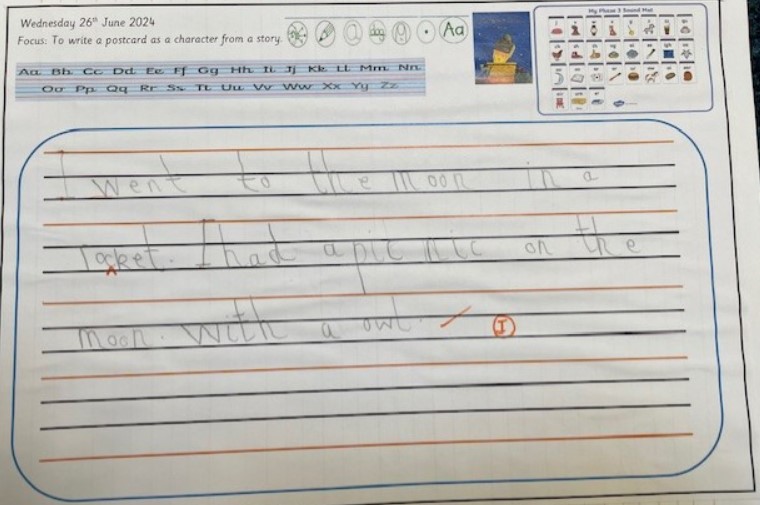 Wednesday 26th June 2024
Focus: To write a postcard as a character from a story.
Aa
My Phase 3 Sound Mat
Aa Bb Cc Dd Ee Ff Gg Hh Ii Jj Kk Ll Mm Nn
Oo Pp Qq Rr Ss Tt Uu Vv Ww Xx Yy Zz
I went to the moon in a
rocket. I had a pic nic on the
moon. With a owl.
I